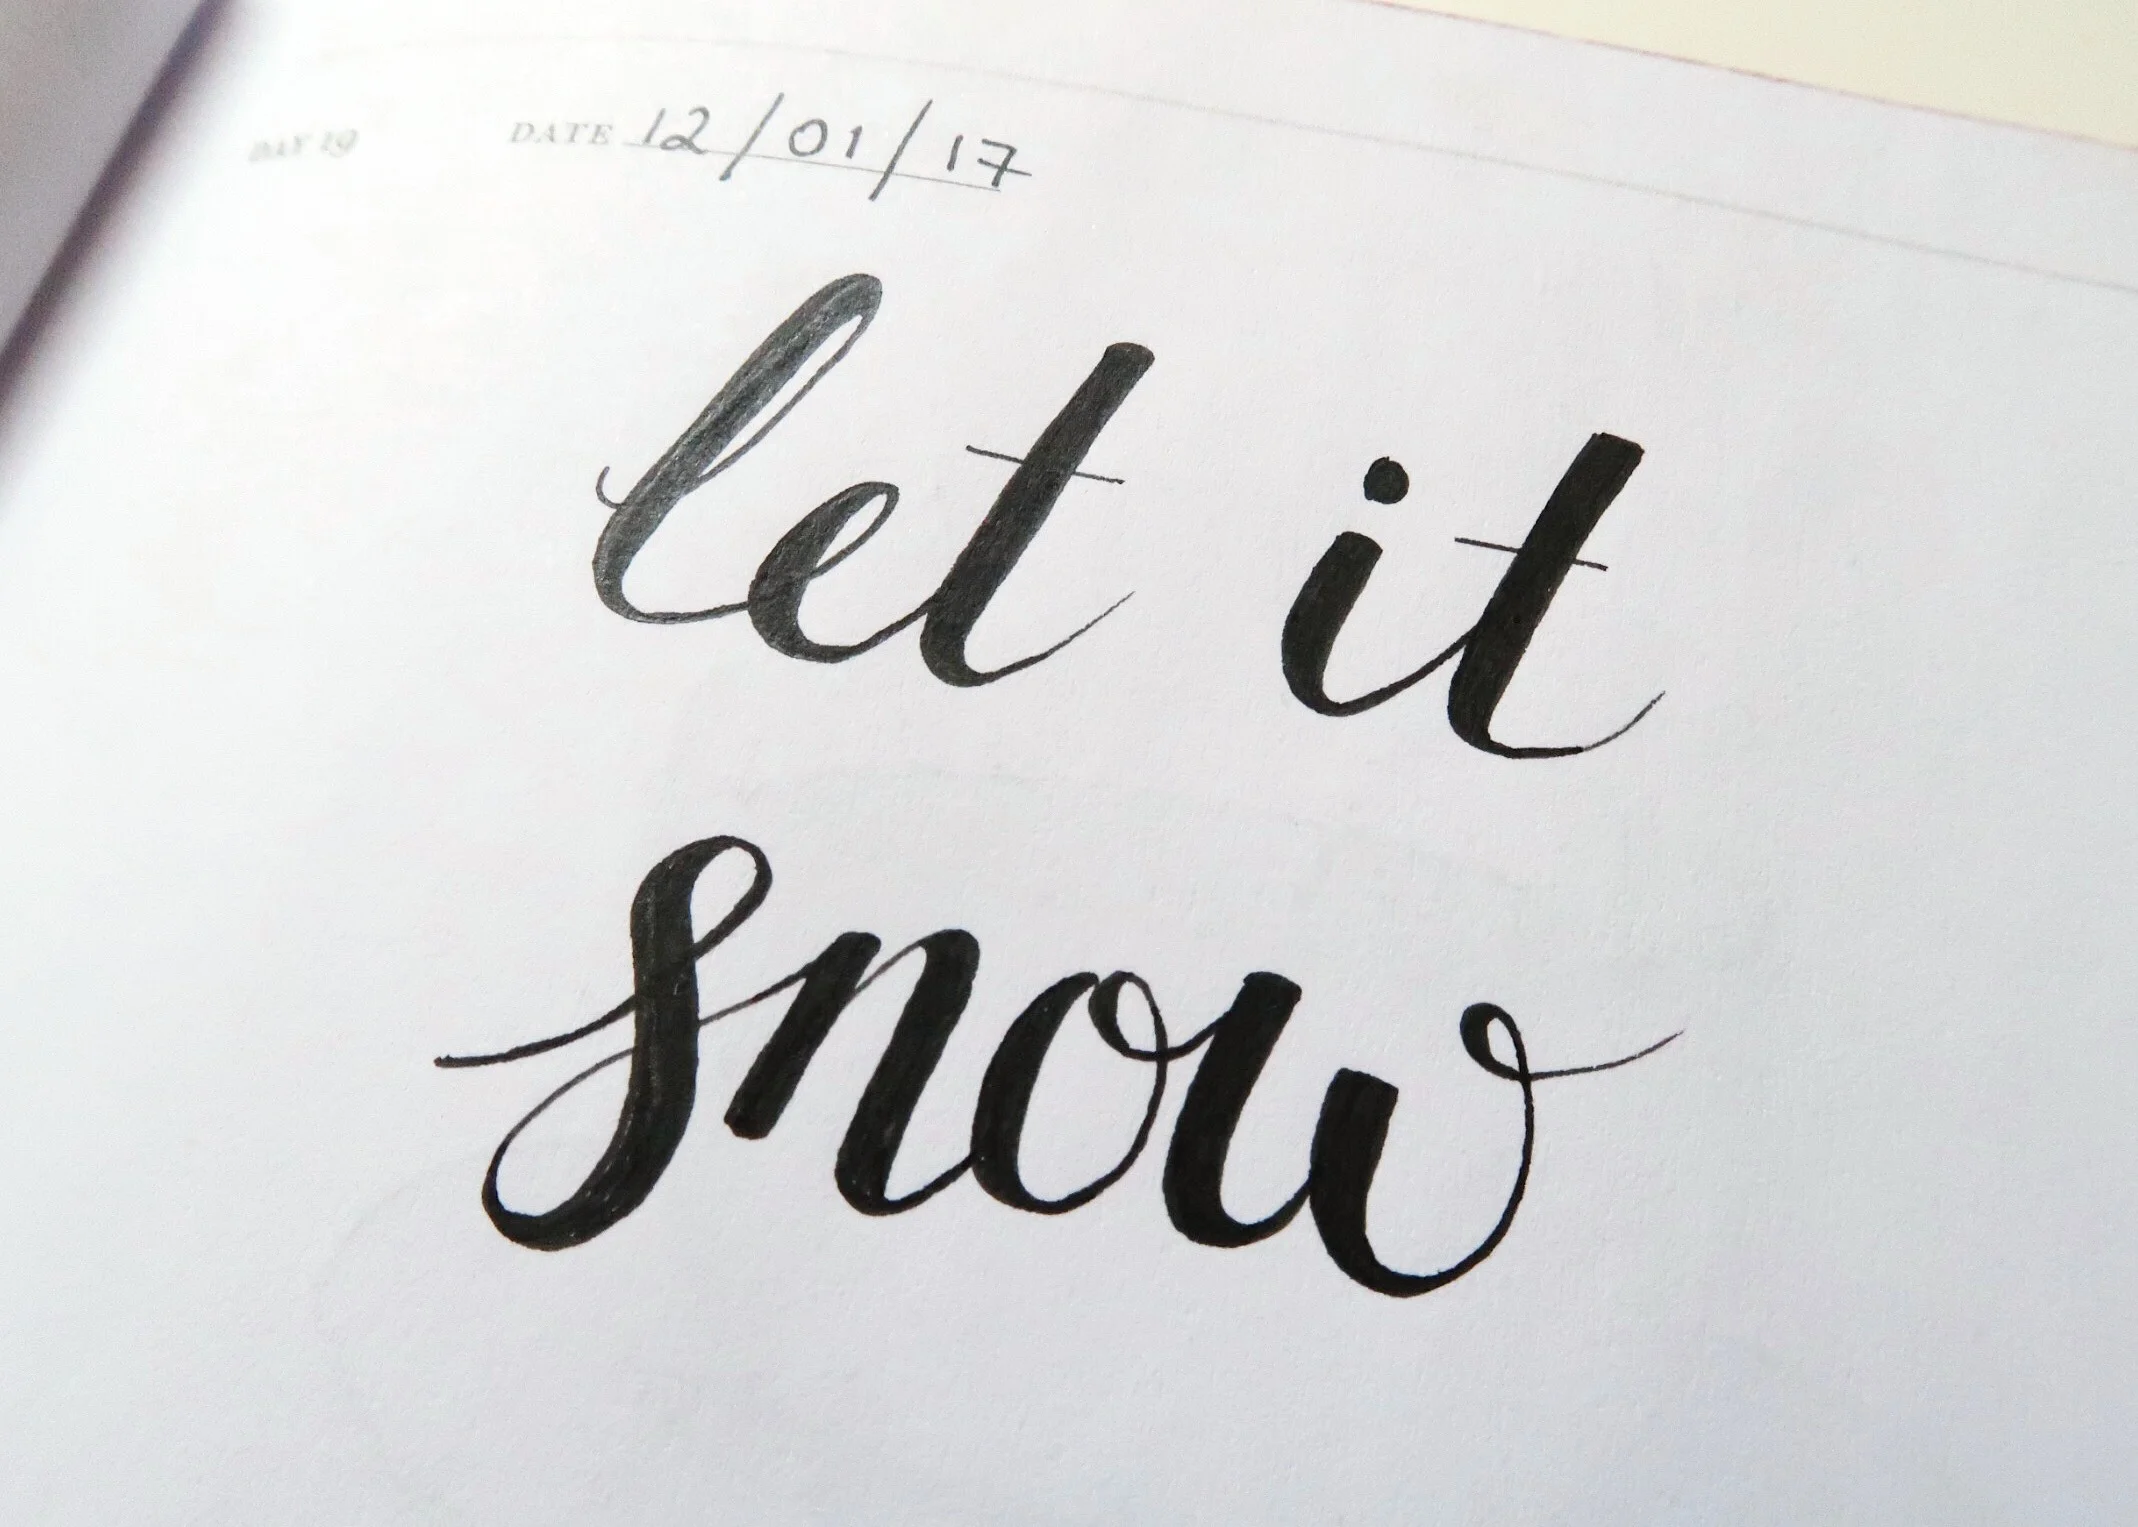 DAY 19 DATE 12/01/17
let it
snow